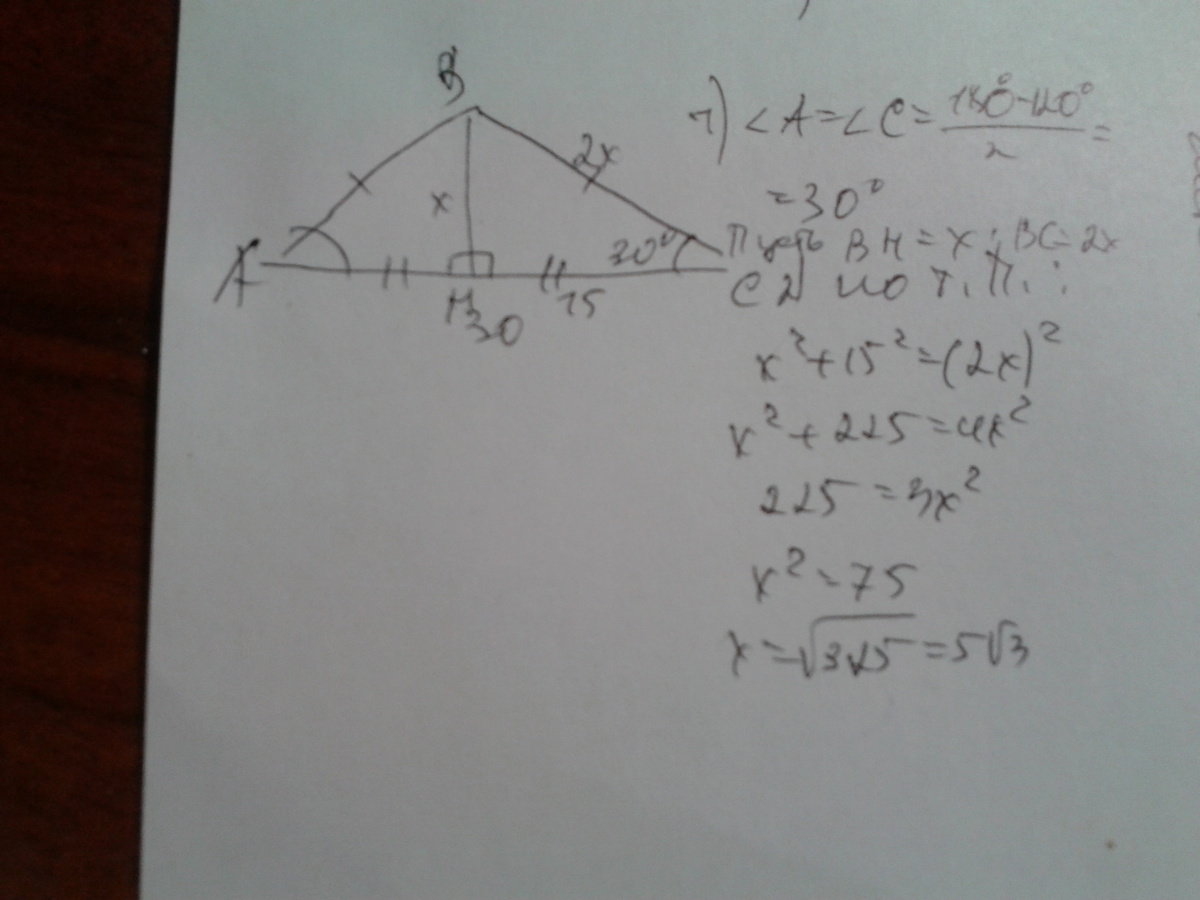 B
2x
x
A
30°
H
15
30
1) ∠A=∠C= (180°-120°)/2 =
=30°
Пусть BH=x; BC=2x
по т.П.:
x²+15²=(2x)²
x²+225=4x²
225=3x²
x²=75
x=√3·25=5√3